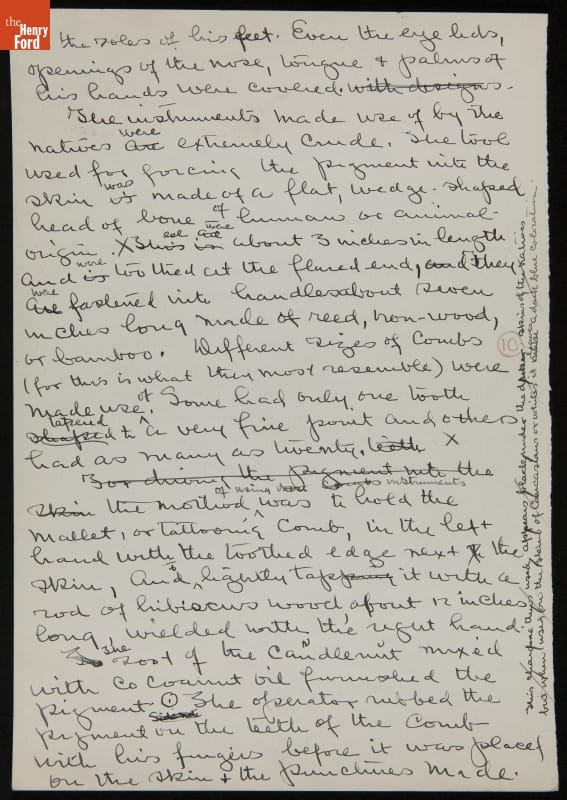 the Henry Ford
the soles of his feet. Even the eye lids,
openings of the nose, tongue & palms of
his hands were covered. with designs.
The instruments made use of by the
natives are were extremely crude. The tool
used for forcing the pigment into the
skin is was made of a flat, wedge-shaped
head of bone of human or animal
origin. X This is are were about 3 inches in length
and is were toothed at the flared end, and they
are were fastened into handles about seven
inches long made of reed, iron-wood,
or bamboo. Different sizes of Combs
(for this is what they most resemble) were
made use of. Some had only one tooth
shaped tapered to a very fine point and others
had as many as twenty. teeth X
For driving the pigment into the
skin the method of using instruments was to hold the
mallet, or tattooing Comb, in the left
hand with the toothed edge next to the
skin, and to lightly tapping it with a
rod of hibiscus wood about 12 inches
long, wielded with the right hand.
The soot of the Candlenut mixed
with Cocoanut oil furnished the
pigment. The operator rubbed the
pigment on the teeth of the Comb
with his fingers before it was placed
on the skin & the punctures made.
10
This charcoal thus used, appears black under the darker skins of the natives
but when used on the skins of Caucasians or whites it leaves a dark blue coloration.